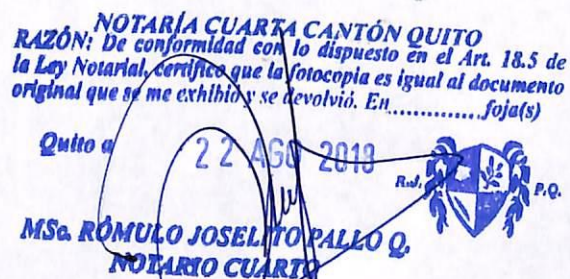 NOTARÍA CUARTA CANTÓN QUITO
RAZÓN: De conformidad con lo dispuesto en el Art. 18.5 de
la Ley Notarial, certifico que la fotocopia es igual al documento
original que se me exhibió y se devolvió. En..............foja(s)
Quito a 22 AGO 2018
R.J. P.Q.
MSc. RÓMULO JOSELITO PALLO Q.
NOTARIO CUARTO